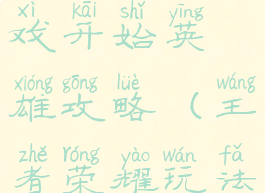 xì kāi shǐ yīng
戏开始英
xióng gōng lüè wáng
雄攻略（王
zhě róng yào wán fǎ
者荣耀玩法